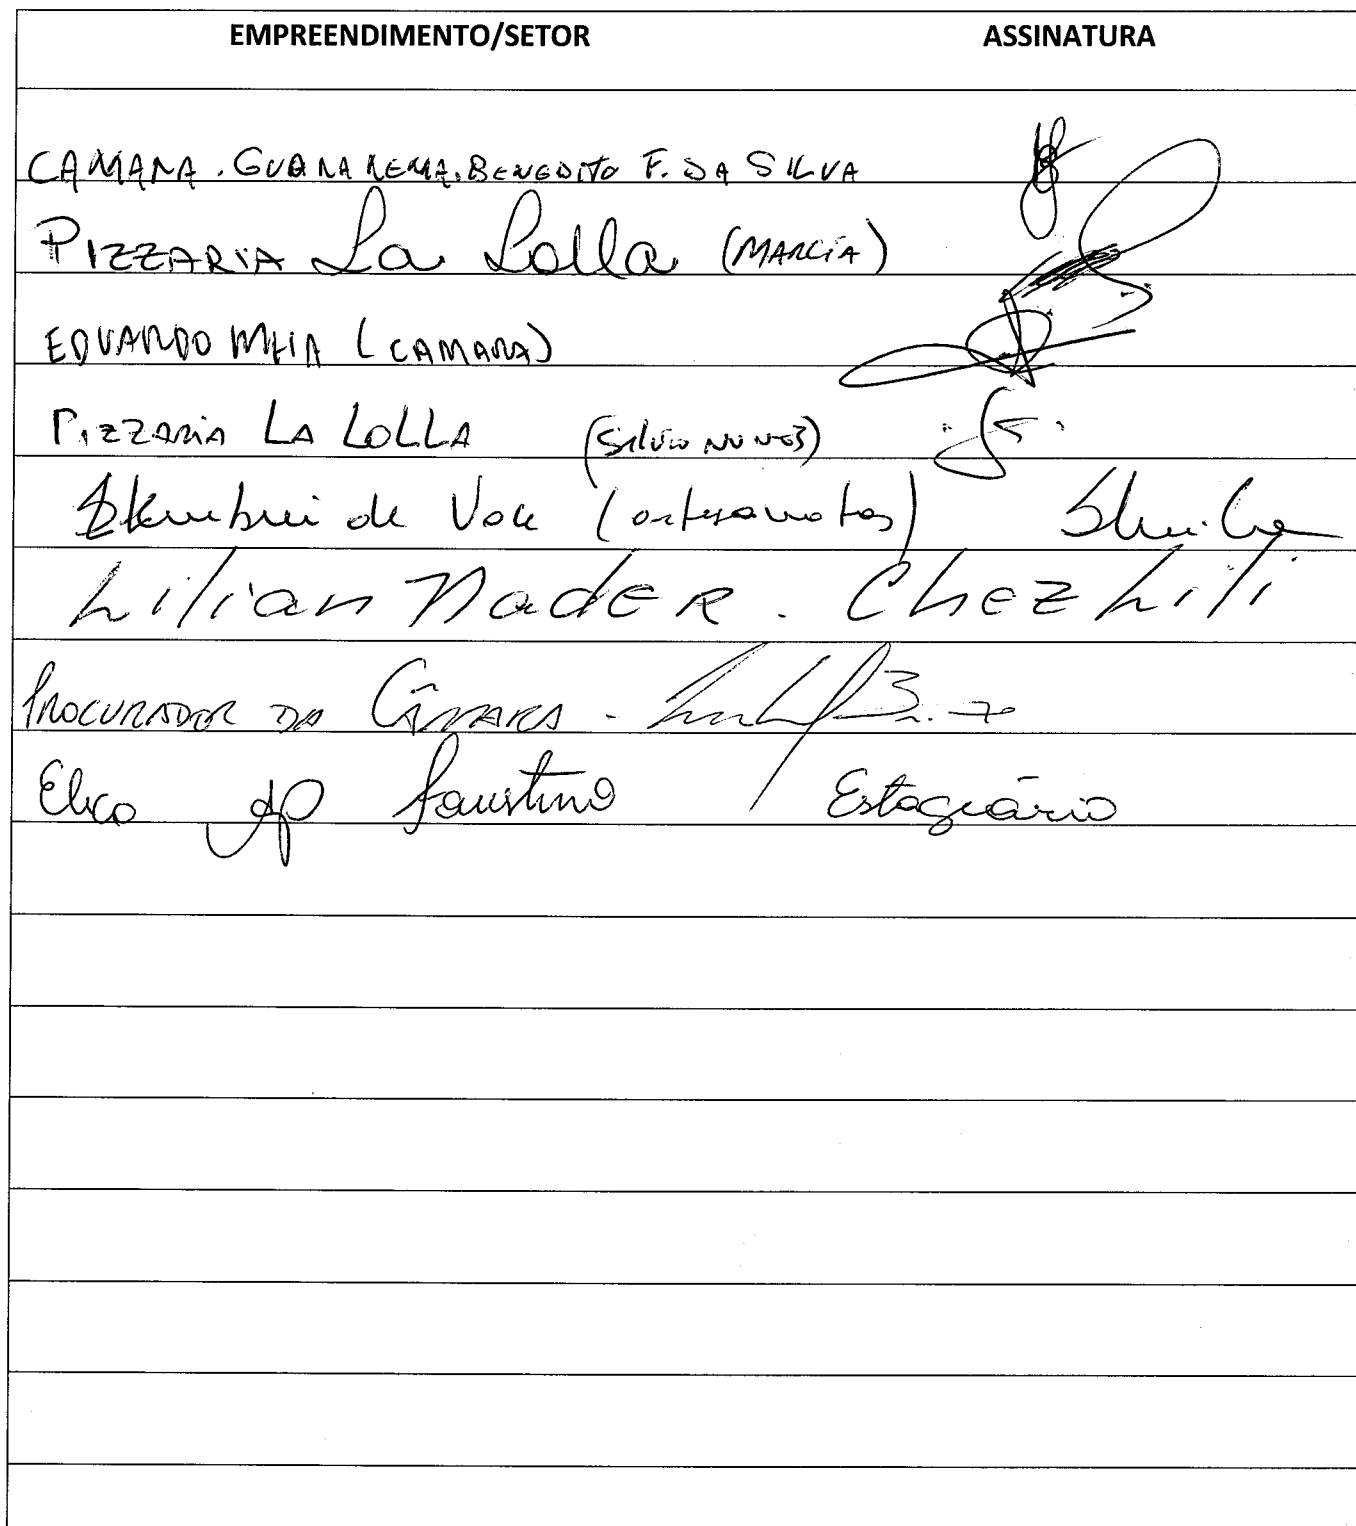 EMPREENDIMENTO/SETOR ASSINATURA
CAMARA. GUARAREMA. BENEDITO F. DA SILVA
PIZZARIA La Lolla (MARCIA)
EDUARDO (CAMARA)
PIZZARIA LA LOLLA (SILVIO NUNES)
de (artesanatos)
Lilian NadER. Chez Lili
PROCURADOR DA CÂMARA -
AP Faustino / Estagiário